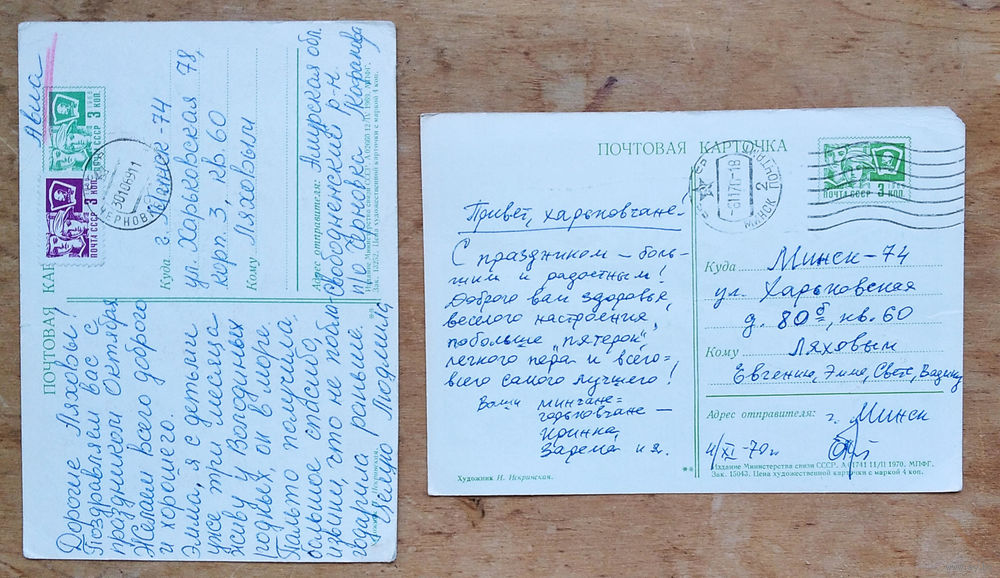 ПОЧТОВАЯ КАР
Авиа
3 КОП
ПОЧТА СССР
3 КОП.
ПОЧТА СССР
Куда г. Минск-74
ул. Харьковская 78,
корп. 3, кв. 60
Кому Ляховым
Адрес отправителя: Амурская обл.
Свободненский р-н
п/о Черновка
Дорогие Ляховы!
Поздравляем вас с
праздником Октября
Желаем всего доброго
и хорошего.
Эмма, я с детьми
уже три месяца
живу у Володиных
родных, он в море.
Пальто получила,
большое спасибо,
извини, что не поблаго-
дарила раньше.
Целую Людмила
ПОЧТОВАЯ КАРТОЧКА
3 КОП.
МИНСК 2
ПОЧТАМТ
Привет, харьковчане.
С праздником – боль-
шим и радостным!
Доброго вам здоровья,
веселого настроения,
побольше "пятерок",
легкого пера и всего=
всего самого лучшего!
Ваши минчане=
горьковчане –
Иринка,
и я.
Художник И. Искринская.
Куда Минск-74
ул. Харьковская
д. 80б, кв. 60
Кому Ляховым
Евгению, Эмме, Свете, Вадику
Адрес отправителя: г. Минск
4/XI-70г
Издание Министерства связи СССР. А 01741 11/II 1970. МПФГ.
Зак. 15043. Цена художественной карточки с маркой 4 коп.